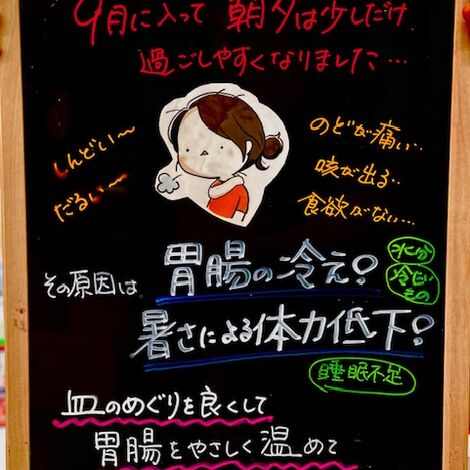 9月に入って 朝夕は少しだけ
過ごしやすくなりました…
しんどい〜
だるい〜
のどが痛い…
咳が出る…
食欲がない…
その原因は
胃腸の冷え?
水分
冷たいもの
暑さによる体力低下?
睡眠不足
血のめぐりを良くして
胃腸をやさしく温めて